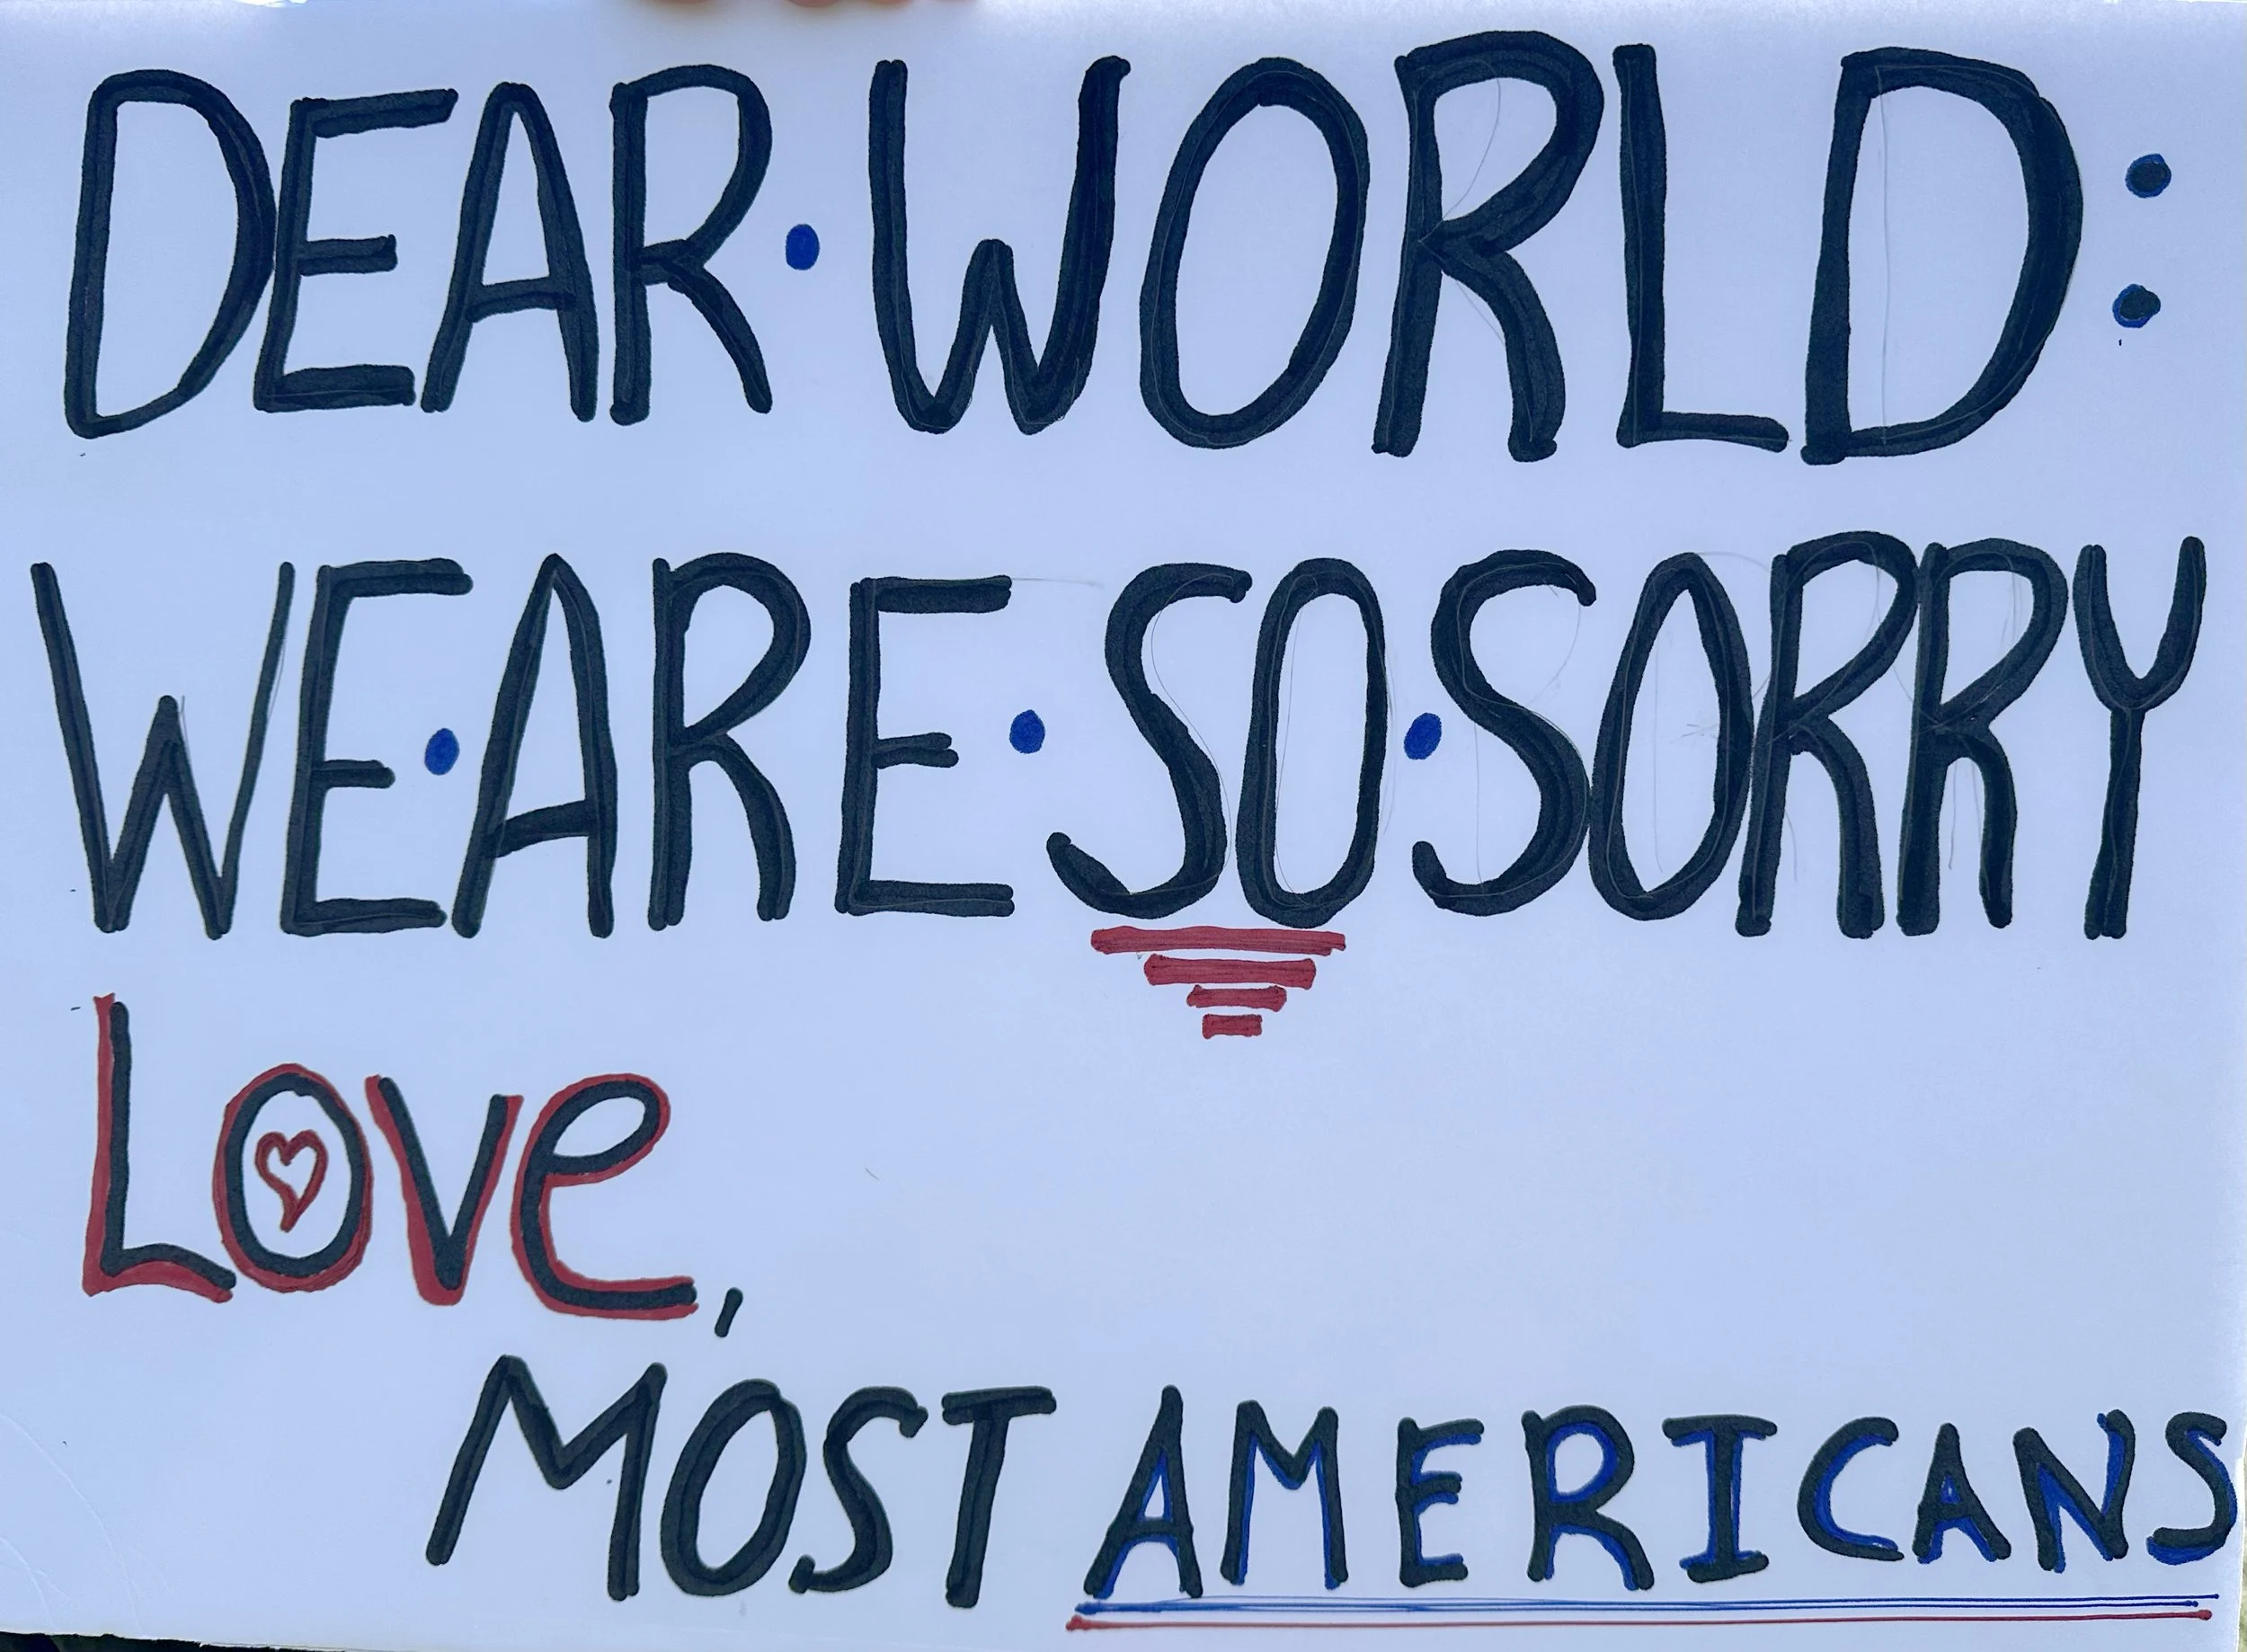 DEAR·WORLD:
WE·ARE·SO·SORRY
Love,
MOST AMERICANS